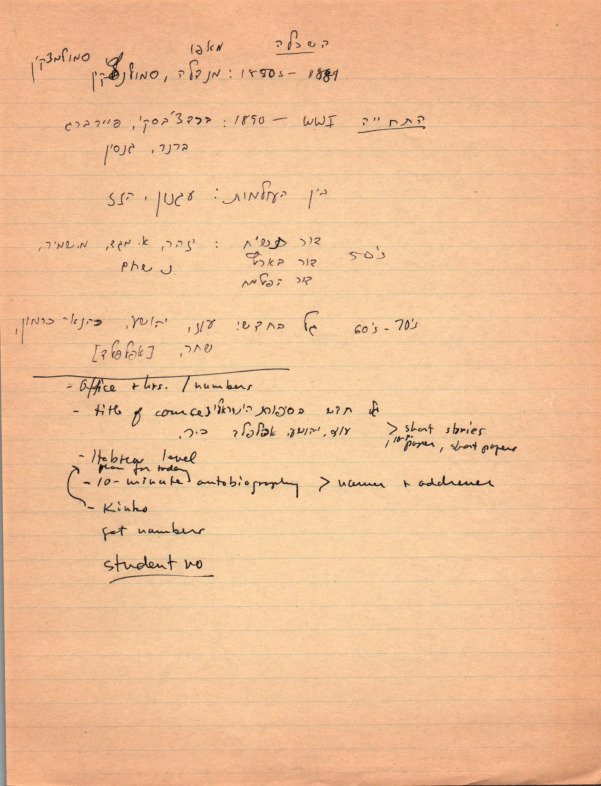 השכלה מאפו סמולנסקין
1850s – 1889 : מנדלה, סמולנסקין
התחייה WWI – 1890 : ברדצ'בסקי, פיירברג
ברנר, גנסין
בין העולמות : עגנון, הזז
50's דור תש"ח : יזהר, א. מגד, מ. שמיר,
דור בארץ נ. שחם
דור הפלמח
60's - 70's גל החדש: עוז, יהושע, כהנא-כרמון,
שחר, [אפלפלד]
- Office + hrs. / numbers
- title of course גל חדש בספרות הישראלית
עוז, יהושע, אפלפלד > short stories
1 paper, short papers
- Hebrew level
plan for today
- 10-minute autobiography > names + addresses
- Kinko
get numbers
student no